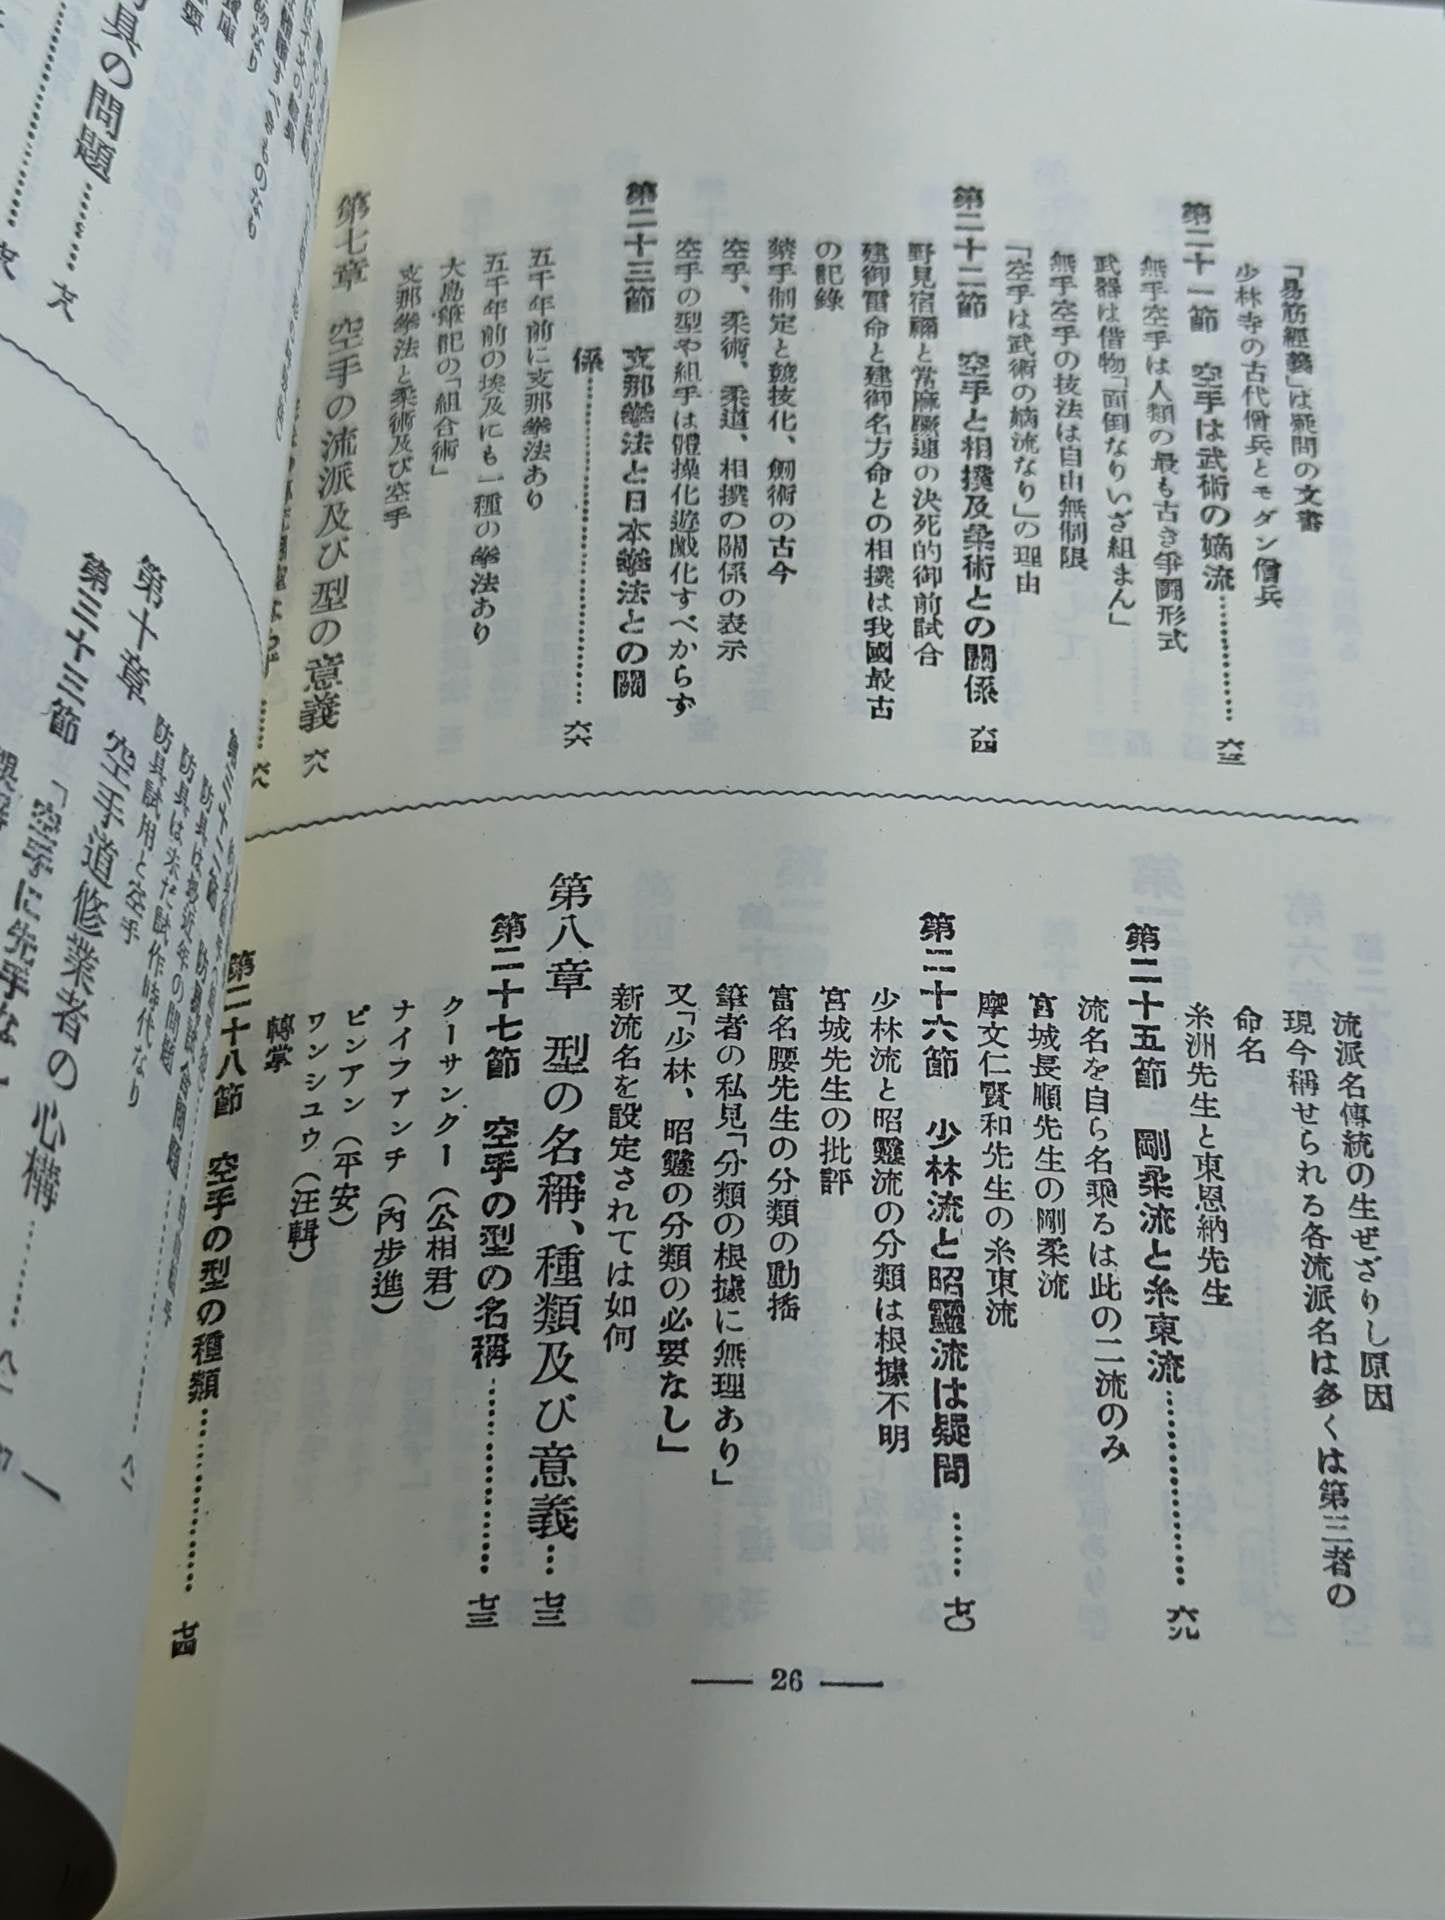 「易筋經義」は疑問の文書
少林寺の古代僧兵とモダン僧兵
第二十一節　空手は武術の嫡流……………六三
無手空手は人類の最も古き爭鬪形式
武器は借物「面倒なりいざ組まん」
無手空手の技法は自由無制限
「空手は武術の嫡流なり」の理由
第二十二節　空手と相撲及柔術との關係　六四
野見宿禰と當麻蹶速の決死的御前試合
建御雷命と建御名方命との相撲は我國最古
の記錄
禁手制定と競技化、劍術の古今
空手、柔術、柔道、相撲の關係の表示
空手の型や組手は體操化遊戯化すべからず
第二十三節　支那拳法と日本拳法との關
係……………六六
五千年前に支那拳法あり
五千年前の埃及にも一種の拳法あり
大島筆記の「組合術」
支那拳法と柔術及び空手
第七章　空手の流派及び型の意義　六八
流派名傳統の生ぜざりし原因
現今稱せられる各流派名は多くは第三者の
命名
糸洲先生と東恩納先生
第二十五節　剛柔流と糸東流……………六九
流名を自ら名乘るは此の二流のみ
宮城長順先生の剛柔流
摩文仁賢和先生の糸東流
第二十六節　少林流と昭靈流は疑問……七〇
少林流と昭靈流の分類は根據不明
宮城先生の批評
富名腰先生の分類の動搖
筆者の私見「分類の根據に無理あり」
又「少林、昭靈の分類の必要なし」
新流名を設定されては如何
第八章　型の名稱、種類及び意義…七三
第二十七節　空手の型の名稱……………七三
クーサンクー（公相君）
ナイフアンチ（內步進）
ピンアン（平安）
ワンシユウ（汪輯）
轉掌
第二十八節　空手の型の種類……………七四
— 26 —
具の問題
防具は最近年の問題
防具は未だ試作時代なり
防具試用と空手
第十章　空手道修業者の心構………八一
第三十三節　「空手に先手な